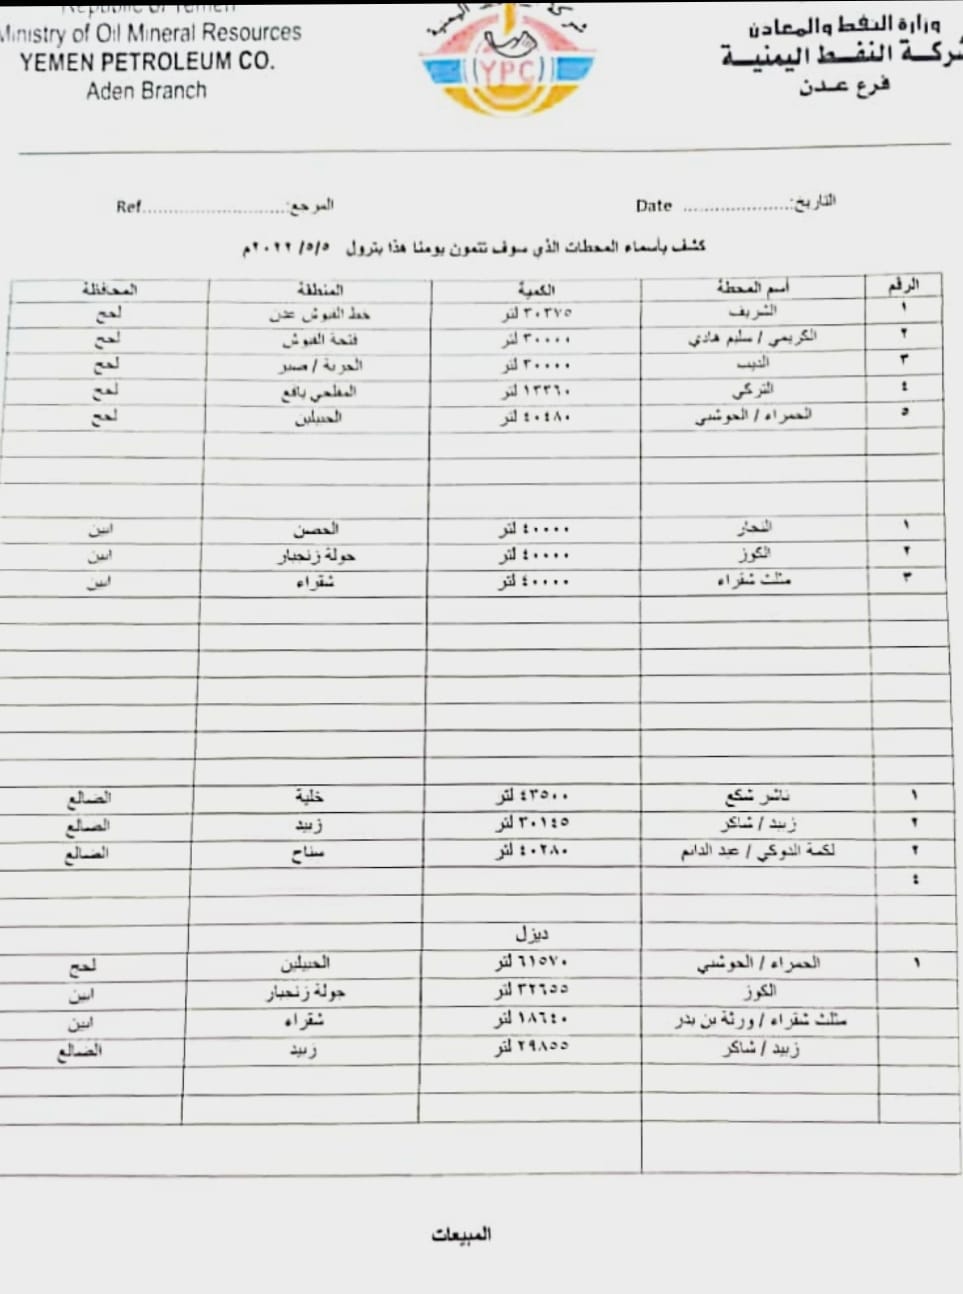 Republic of Yemen
Ministry of Oil Mineral Resources
YEMEN PETROLEUM CO.
Aden Branch
YPC
وزارة النفط والمعادن
شركة النفط اليمنية
فرع عدن
التاريخ:.................... Date
المرجع:.........................Ref
كشف بأسماء المحطات الذي سوف تتمون يومنا هذا بترول ٢٠٢٢/٥/٥م
الرقم أسم المحطة الكمية المنطقة المحافظة
١ الشريف ٣٠٣٧٥ لتر خط الفيوش عدن لحج
٢ الكريمي / سليم هادي ٣٠٠٠٠ لتر فتحة الفيوش لحج
٣ الذيب ٣٠٠٠٠ لتر الحرية / صبر لحج
٤ التركي ١٣٣٦٠ لتر المفلحي يافع لحج
٥ الحمراء / الحوشبي ٤٠٤٨٠ لتر الحبيلين لحج
١ النجار ٤٠٠٠٠ لتر الحصن ابين
٢ الكوز ٤٠٠٠٠ لتر جولة زنجبار ابين
٣ مثلث شقراء ٤٠٠٠٠ لتر شقراء ابين
١ ناشر شكع ٤٣٥٠٠ لتر خلية الضالع
٢ زبيد / شاكر ٣٠١٤٥ لتر زبيد الضالع
٢ لكمة الدوكي / عبد الدائم ٤٠٢٨٠ لتر سناح الضالع
٤
ديزل
١ الحمراء / الحوشبي ٦١٥٧٠ لتر الحبيلين لحج
الكوز ٣٢٦٥٥ لتر جولة زنجبار ابين
مثلث شقراء / ورثة بن بدر ١٨٦٤٠ لتر شقراء ابين
زبيد / شاكر ٢٩٨٥٥ لتر زبيد الضالع
المبيعات